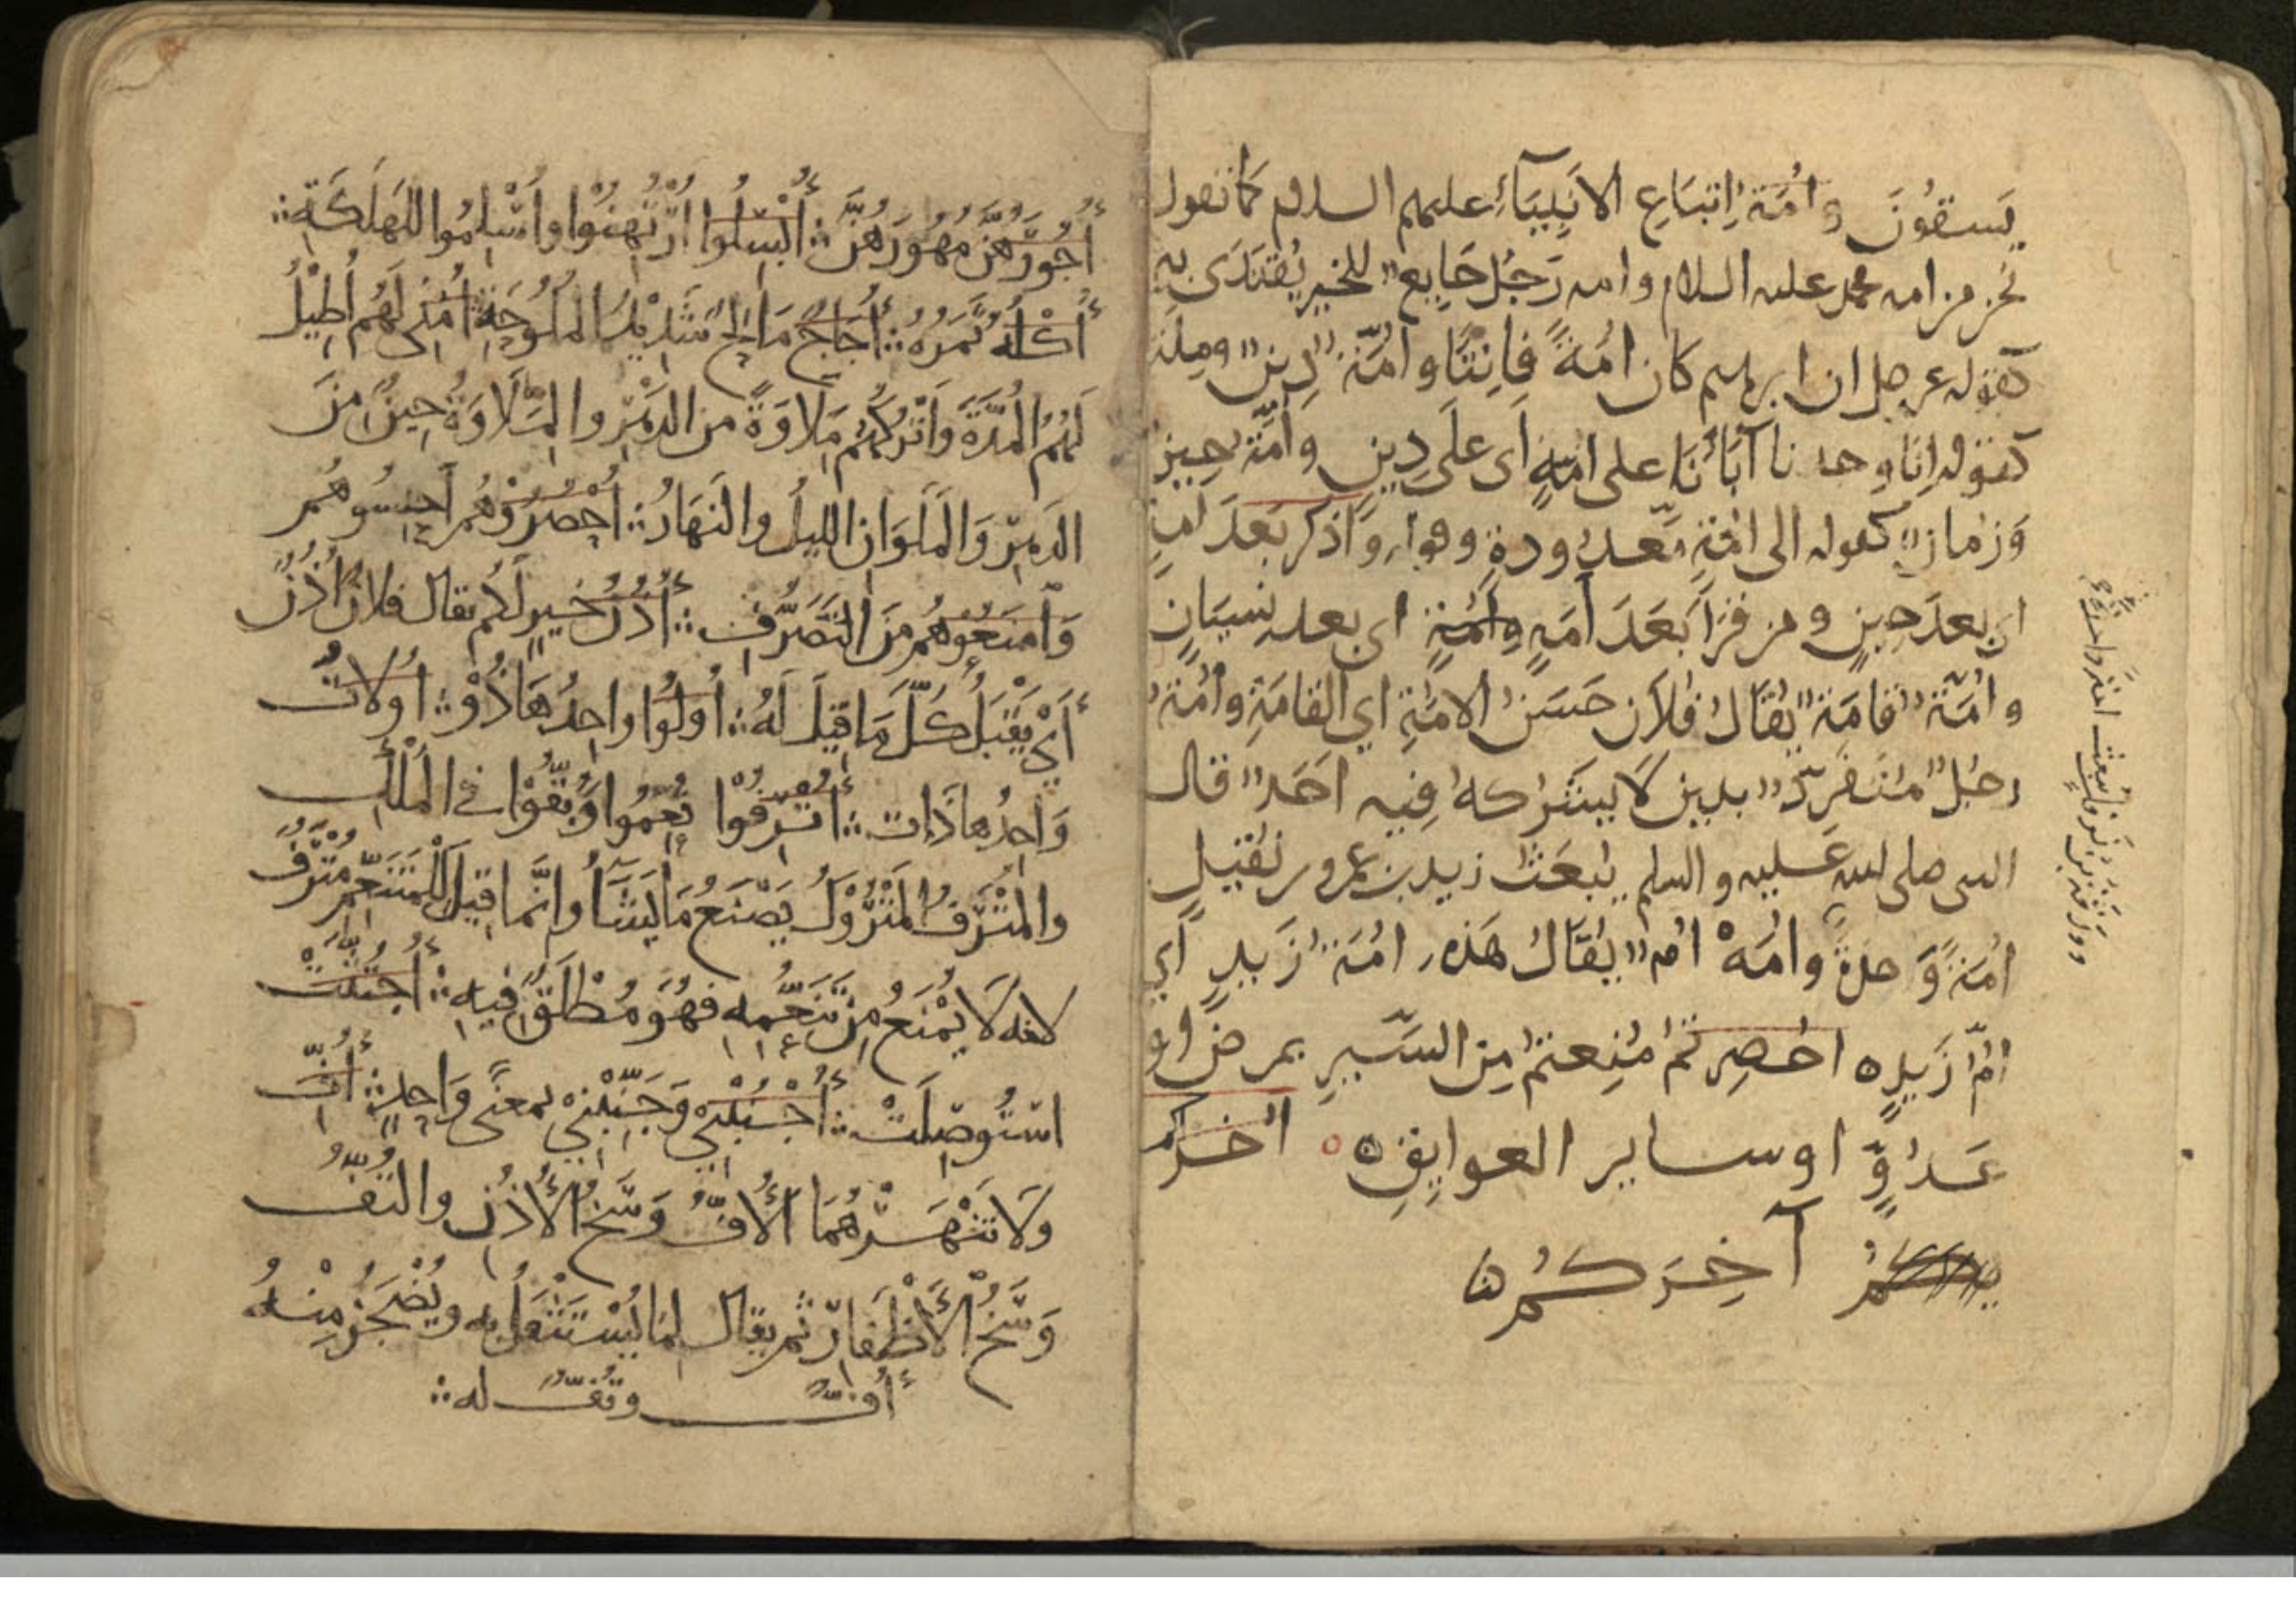 يَسقُونَ وامُّةُ اِتبَاعِ الانَبِيَآءِ عليهم السلام كما تقول
نحن من امه محمد عليه السلام وامه رَجُل جَامِع للخير يُقتَدَى بهِ
كقوله عز وجل ان ابرهيم كان امُةً قانِتًا وامُّة دِين ومِلة
كقوله اِنَّا وجدنا آبَآئَنَا على امةٍ اَى عَلَى دِينٍ وَامُّة حِين
وَزمَان كقوله الى امُةٍ مَّعدُودةٍ وقوله وَاذكر بَعدَ امةٍ
اى بعدَ حِينٍ ومن قرَا بَعَدَ اَمَهٍ وامْهٍ اى بعد نِسيَانٍ
وامُّة قامَة يُقَالُ فُلاَن حَسَنُ الامُّةِ اي القامَةِ وامُّة
رجُل مُنفَرِد بدِين لاَ يَشرَكهُ فِيه احَد قال
النبي صلى الله عَليه والسلم يُبعَث زيد بن عمرو بن نُفَيلٍ
امُةً وَّحدةً وامُّة ام يُقَالُ هَذه امُّة زَيدٍ اَي
امُّ زَيدٍ ه احُصِرتمُ مُنِعتمُ مِن السَّيرِ بمرضٍ او
عَدُوٍّ او ساير العوايِقِ ه اخراكم
آخِركُم ه
أُجُورَهُنَّ مُهُورَهُنَّ ؞ أُبْسِلُوا ارْتُهِنُوا وأُسْلِمُوا للهَلَكَةِ ؞
أُكْلُهُ ثَمَرُهُ ؞ أُجَاجٌ مَالِحٌ شَدِيدُ المُلُوحَةِ ؞ أُمْلِى لَهُم أُطِيلُ
لَهُمُ المُدَّةَ وَأَتْرُكُهُم مَلَاوَةً من الدَّهْرِ والمَلَاوَةُ حِينٌ مِنَ
الدَّهْرِ وَالمَلَوَانِ الليلُ والنَهَارُ ؞ أُحْصُرُوْهُم احْبِسُوهُم
وَامْنَعُوْهُم مِنَ التَّصَرُّفِ ؞ أُذُنُ خَيرٍ لَكُم يقال فلانٌ أُذُنٌ
أَيْ يَقْبَلُ كُلَّ مَا قِيلَ لَهُ ؞ أُولُوا واحِدُهَا ذُوْ ؞ أُولَاتُ
وَاحِدُها ذَات ؞ أُتْرِفُوْا نُعِّمُوا وَبُقُّوْا في المُلْكِ
والمُتْرَفُ المَتْرُوْكُ يَصْنَعُ مَا يَشَآءُ وانَّما قِيلَ لِلْمُتَنَعِّمِ مُتْرَفٌ
لانه لَا يُمْنَعُ مِنْ تَنَعُّمِه فهُوَ مُطْلَقٌ فِيهِ ؞ أُجْتُثَّتْ
اسْتُوصِلَتْ ؞ أُجْنُبْنِي وَجَنِّبْنِيْ بمعنًى وَاحِدٍ ؞ أُفٍّ
ولَا تَنْهَرْهُمَا الْأُفُّ وَسَخُ الْأُذُنِ والتُّفُّ
وَسَخُ الْأَظْفَارِ ثم يقال لِمَا يُسْتَثْقَلُ به ويُضْجَرُ مِنْهُ
أُفٌّ وتُفٌّ له ؞